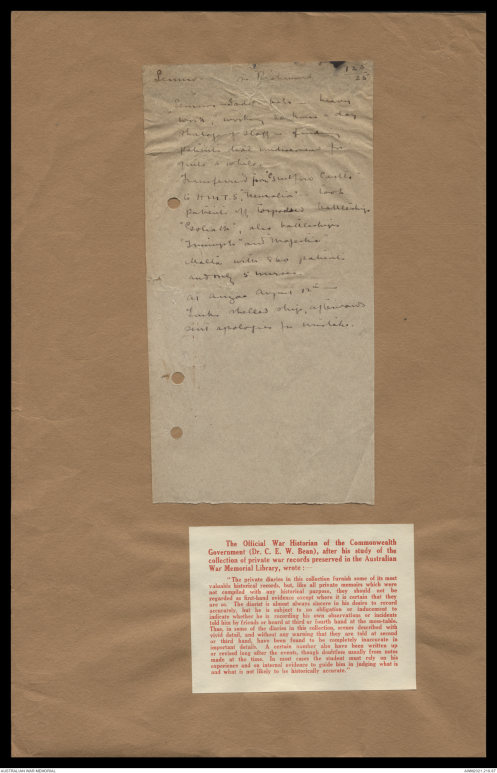 120
25
Lemnos
Lemnos - heavy
work, working hours a day
patients
quite a while.
Transferred from "Guildford Castle"
to H.M.T.S. "Neuralia" - took
patients off torpedoed battleships
"Goliath", also battleships
"Triumph" and Majestic
Malta with 800 patients
and only 5 nurses.
At Anzac August 12th
Turks shelled ship, afterwards
sent apologies for mistake.
The Official War Historian of the Commonwealth
Government (Dr. C. E. W. Bean), after his study of the
collection of private war records preserved in the Australian
War Memorial Library, wrote :—
"The private diaries in this collection furnish some of its most
valuable historical records, but, like all private memoirs which were
not compiled with any historical purpose, they should not be
regarded as first-hand evidence except where it is certain that they
are so. The diarist is almost always sincere in his desire to record
accurately, but he is subject to no obligation or inducement to
indicate whether he is recording his own observations or incidents
told him by friends or heard at third or fourth hand at the mess-table.
Thus, in some of the diaries in this collection, scenes described with
vivid detail, and without any warning that they are told at second
or third hand, have been found to be completely inaccurate in
important details. A certain number also have been written up
or revised long after the events, though doubtless usually from notes
made at the time. In most cases the student must rely on his
experience and on internal evidence to guide him in judging what is
and what is not likely to be historically accurate."
AUSTRALIAN WAR MEMORIAL